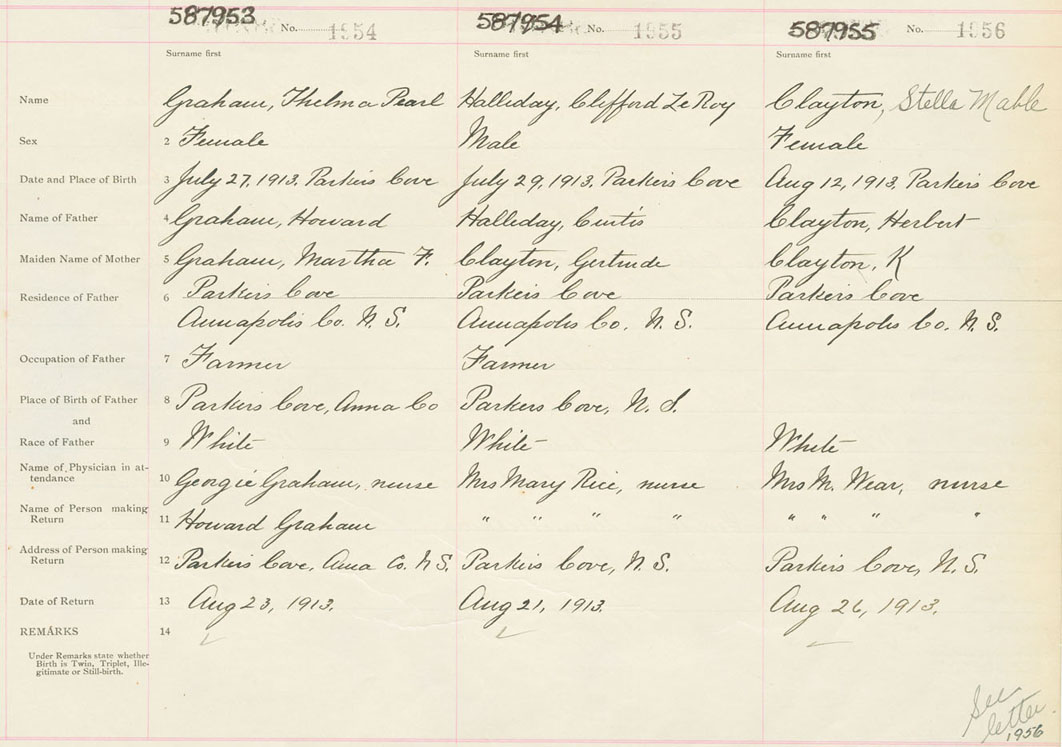 587953 587954 587955
No. 1954 No. 1955 No. 1956
Surname first Surname first Surname first
Name Graham, Thelma Pearl Halliday, Clifford LeRoy Clayton, Stella Mable
Sex 2 Female Male Female
Date and Place of Birth 3 July 27, 1913, Parkers Cove July 29, 1913, Parkers Cove Aug 12, 1913, Parkers Cove
Name of Father 4 Graham, Howard Halliday, Curtis Clayton, Herbert
Maiden Name of Mother 5 Graham, Martha F. Clayton, Gertrude Clayton, K
Residence of Father 6 Parkers Cove Parkers Cove Parkers Cove
Annapolis Co. N.S. Annapolis Co. N.S. Annapolis Co. N.S.
Occupation of Father 7 Farmer Farmer
Place of Birth of Father 8 Parkers Cove, Anna Co Parkers Cove, N.S.
and
Race of Father 9 White White White
Name of Physician in at-
tendance 10 Georgie Graham, nurse Mrs Mary Rice, nurse Mrs M. Wear, nurse
Name of Person making
Return 11 Howard Graham " " " " " " " "
Address of Person making
Return 12 Parkers Cove, Anna Co. N.S. Parkers Cove, N.S. Parkers Cove, N.S.
Date of Return 13 Aug 23, 1913. Aug 21, 1913 Aug 26, 1913.
REMARKS 14
Under Remarks state whether
Birth is Twin, Triplet, Ille-
gitimate or Still-birth.
See
letter
1956